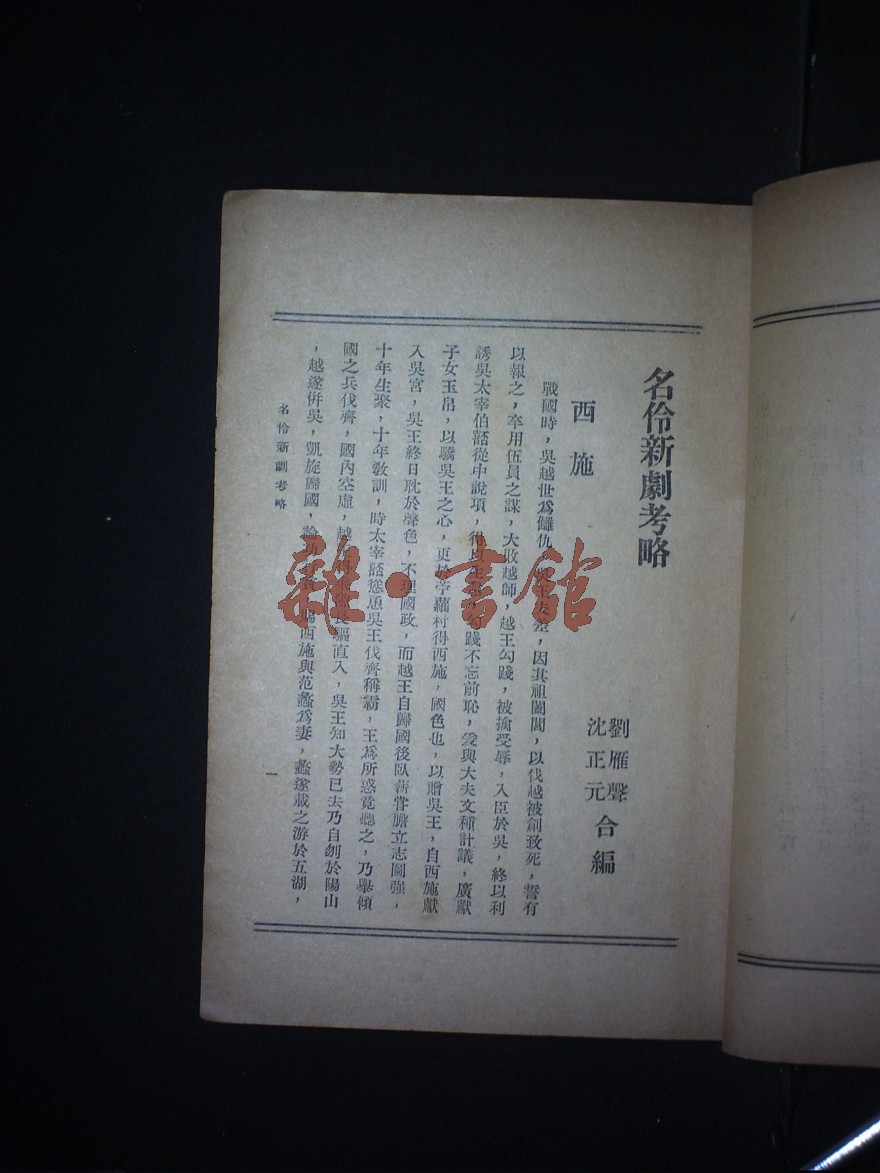 名伶新劇考略
劉雁聲
沈正元
合編
西施
戰國時，吳越世爲讎仇，吳王夫差，因其祖闔閭，以伐越被創致死，誓有
以報之，卒用伍員之謀，大敗越師，越王勾踐，被擒受辱，入臣於吳，終以利
誘吳太宰伯嚭從中說項，得以生 勾踐不忘前恥，爰與大夫文種計議，廣獻
子女玉帛，以驕吳王之心，更於苧蘿村得西施，國色也，以贈吳王，自西施獻
入吳宮，吳王終日耽於聲色，不理國政，而越王自歸國後臥薪嘗膽立志圖强，
十年生聚，十年敎訓，時太宰嚭慫恿吳王伐齊稱霸，王爲所惑竟聽之，乃舉傾
國之兵伐齊，國內空虛，越 長驅直入，吳王知大勢已去乃自刎於陽山
，越遂併吳，凱旋歸國，論功 賜西施與范蠡爲妻，蠡遂載之游於五湖，
名伶新劇考略
一
雜·書館